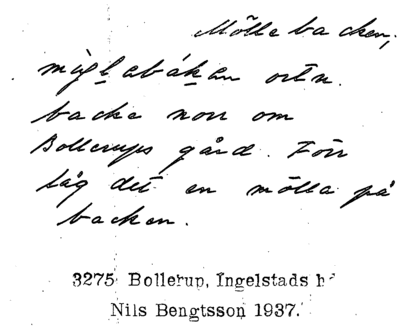 Möllebacken,
ortn.
backe norr om
Bollerups gård. Förr
låg det en mölla på
backen.
3275 Bollerup, Ingelstads h
Nils Bengtsson 1937.